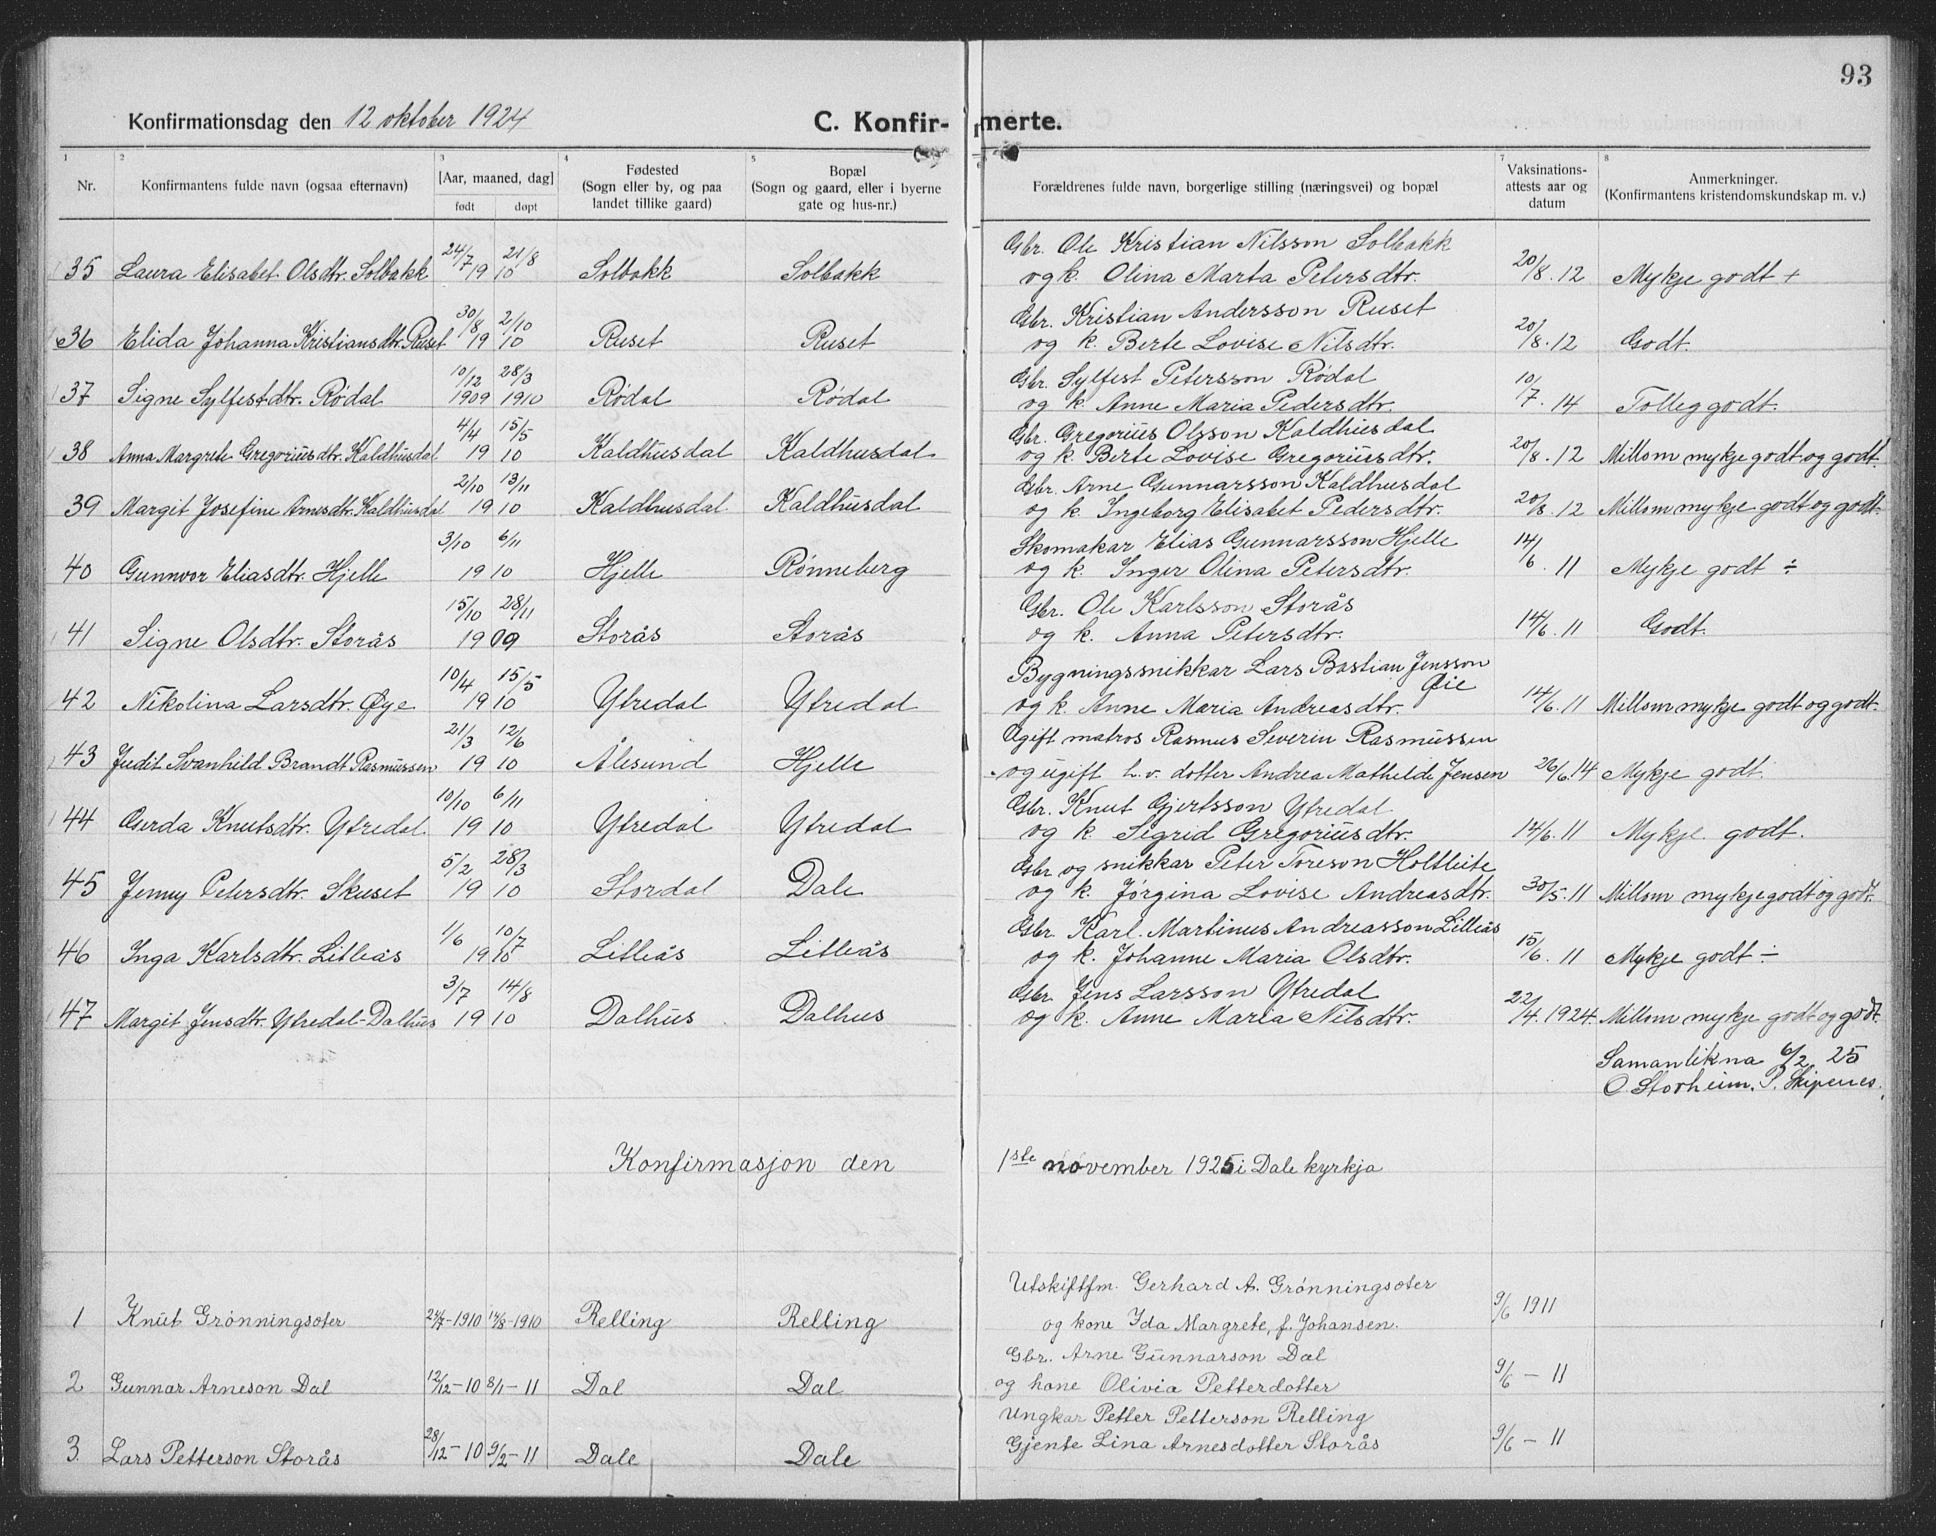 93
Konfirmationsdag den 12 oktober 1924
C. Konfirmerte.
1 2 3 4 5 6 7 8
Nr.
Konfirmantens fulde navn (ogsaa efternavn)
[Aar, maaned, dag]
født døpt
Fødested
(Sogn eller by, og paa
landet tillike gaard)
Bopæl
(Sogn og gaard, eller i byerne
gate og hus-nr.)
Forældrenes fulde navn, borgerlige stilling (næringsvei) og bopæl
Vaksinations-
attests aar og
datum
Anmerkninger.
(Konfirmantens kristendomskundskap m. v.)
24/7 21/8 Gbr. Ole Kristian Nilsson Solbakk
35 Laura Elisabet Olsdtr. Solbakk 19 10 Solbakk Solbakk og k. Olina Marta Petersdtr. 20/8.12 Mykje godt +
30/8 2/10 Gbr. Kristian Andersson Ruset
36 Elida Johanna Kristiansdtr. Ruset 19 10 Ruset Ruset og k. Berte Lovise Nilsdtr. 20/8.12 Godt.
10/12 28/3 Gbr. Sylfest Petersson Rødal
37 Signe Sylfestdtr. Rødal 1909 1910 Rødal Rødal og k. Anne Maria Pedersdtr. 10/7.14 Tolleg godt.
4/4 15/5 Gbr. Gregorius Olsson Kaldhusdal
38 Anna Margrete Gregoriusdtr. Kaldhusdal 19 10 Kaldhusdal Kaldhusdal og k. Berte Lovise Gregoriusdtr. 20/8.12 Millom mykje godt og godt.
2/10 13/11 Gbr. Arne Gunnarsson Kaldhusdal
39 Margit Josefine Arnesdtr. Kaldhusdal 19 10 Kaldhusdal Kaldhusdal og k. Ingeborg Elisabet Pedersdtr. 20/8.12 Millom mykje godt og godt.
3/10 6/11 Skomakar Elias Gunnarsson Hjelle
40 Gunnvor Eliasdtr. Hjelle 19 10 Hjelle Rønneberg og k. Inger Olina Petersdtr. 14/6.11 Mykje godt ÷
15/10 28/11 Gbr. Ole Karlsson Storås
41 Signe Olsdtr. Storås 19 09 Storås Storås og k. Anna Petersdtr. 14/6.11 Godt.
10/4 15/5 Bygningssnikkar Lars Bastian Jensson Øie
42 Nikolina Larsdtr. Øye 19 10 Ytredal Ytredal og k. Anne Maria Andreasdtr. 14/6.11 Millom mykje godt og godt.
21/3 12/6 Ugift matros Rasmus Severin Rasmussen
43 Judit Svanhild Brandt Rasmussen 19 10 Ålesund Hjelle og ugift h.v. dotter Andrea Mathilde Jensen 26/6.14 Mykje godt.
10/10 6/11 Gbr. Knut Gjertsson Ytredal
44 Gerda Knutsdtr. Ytredal 19 10 Ytredal Ytredal og k. Sigrid Gregoriusdtr. 14/6.11 Mykje godt.
5/2 28/3 Gbr og snikkar Peter Toreson Holtleite
45 Jenny Petersdtr. Skuset 19 10 Stordal Dale og k. Jørgina Lovise Andreasdtr. 30/5.11 Millom mykje godt og godt.
1/6 10/7 Gbr. Karl Martinus Andreasson Litleås
46 Inga Karlsdtr. Litleås 19 10 Litleås Litleås og k. Johanne Maria Olsdtr. 15/6.11 Mykje godt ÷
3/7 14/8 Gbr. Jens Larsson Ytredal
47 Margit Jensdtr. Ytredal-Dalhus 19 10 Dalhus Dalhus og k. Anne Maria Nilsdtr. 22/4.1924. Millom mykje godt og godt.
Samanlikna 6/2 25
O. Storheim. P. Skipenes.
Konfirmasjon den 1ste november 1925 i Dale kyrkja
Utskiftfm. Gerhard A. Grønningsæter
1 Knut Grønningsæter 24/7-1910 14/8-1910 Relling Relling og kone Ida Margrete, f. Johansen. 9/6 1911
Gbr. Arne Gunnarson Dal
2 Gunnar Arneson Dal 12/12-10 8/1-11 Dal Dal og kone Olivia Petterdotter 9/6 - 11
Ungkar Petter Petterson Relling
3. Lars Petterson Storås 28/12-10 9/2-11 Dale Dale Gjente Lina Arnesdotter Storås 9/6 - 11